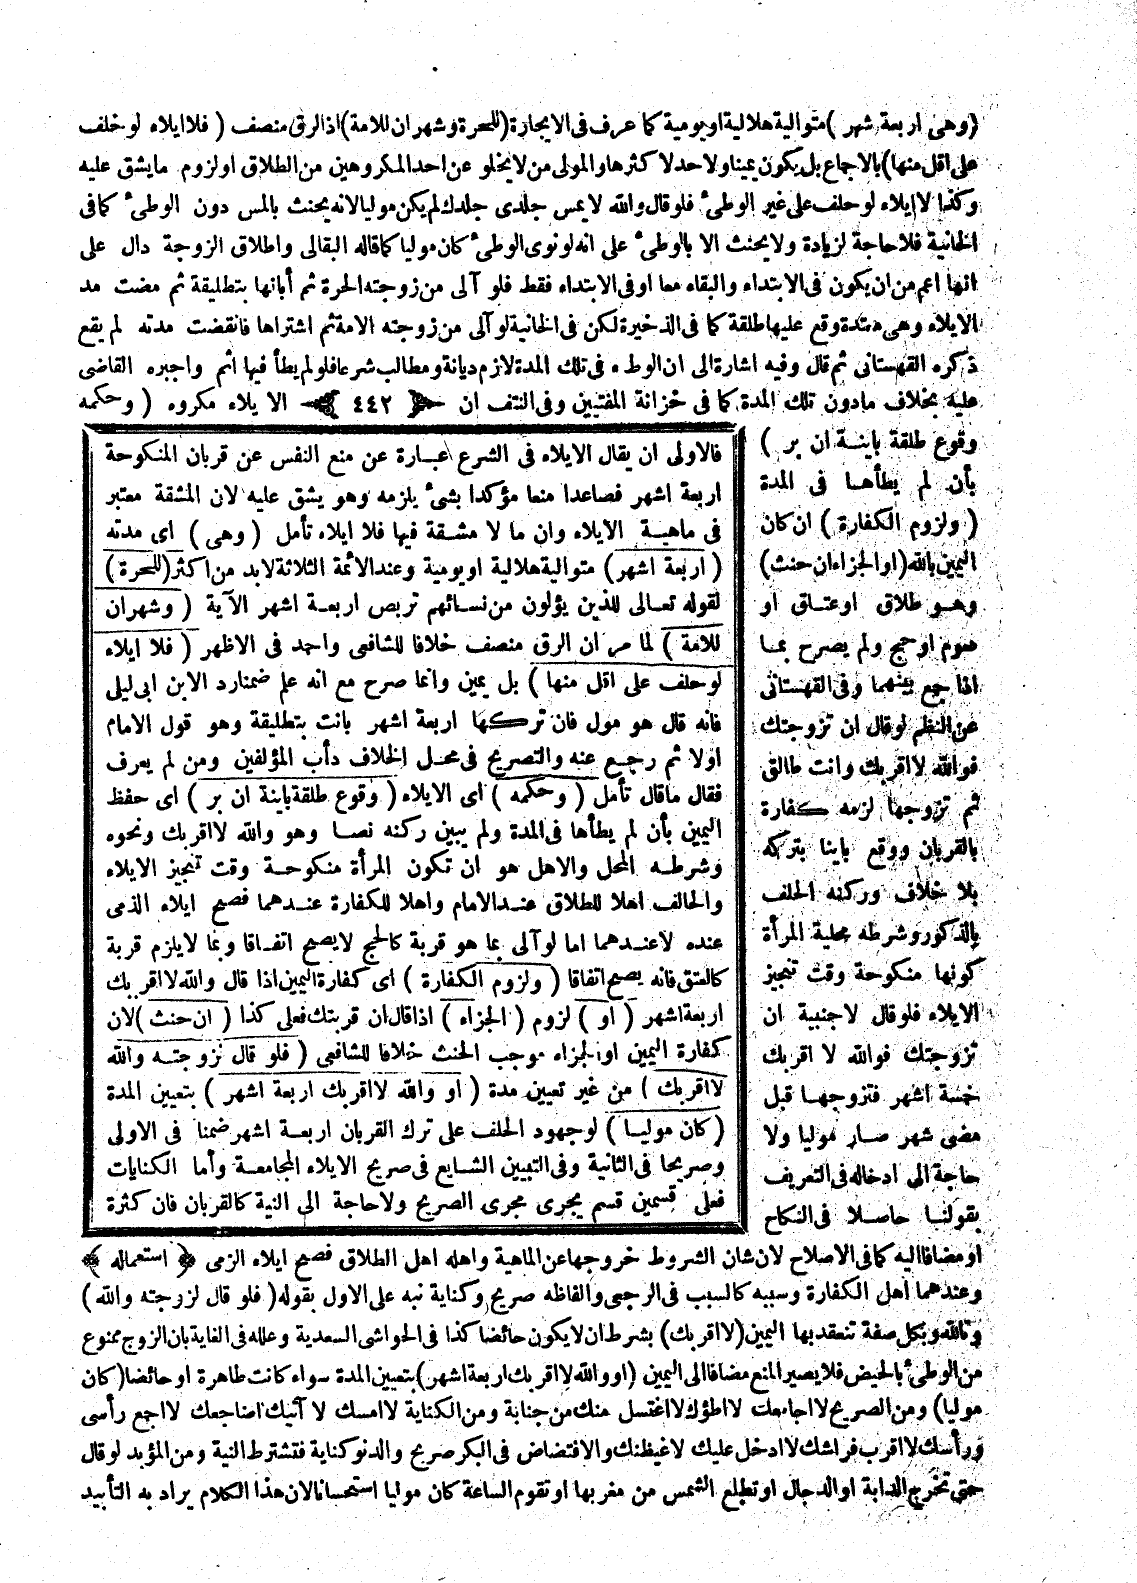 (وهى اربعة شهر) متوالية هلالية او يومية كما عرف فى الايجارة (للحرة وشهران للامة) اذ الرق منصف ( فلا ايلاء لو حلف
على اقل منها) بالاجماع بل يكون يمينا ولا حد لا كثرها والمولى من لا يخلو عن احد المكروهين من الطلاق او لزوم مايشق عليه
وكذا لا ايلاء لو حلف على غير الوطئ فلو قال والله لا يمس جلدى جلدك لم يكن موليا لانه يحنث بالمس دون الوطئ كما فى
الخانية فلا حاجة لزيادة ولا يحنث الا بالوطئ على انه لو نوى الوطئ كان موليا كما قاله البقالى واطلاق الزوجة دال على
انها اعم من ان يكون فى الابتداء والبقاء معا او فى الابتداء فقط فلو آلى من زوجته الحرة ثم أبانها بتطليقة ثم مضت مد
الايلاء وهى معتدة وقع عليها طلقة كما فى الذخيرة لكن فى الخانية لو آلى من زوجته الامة ثم اشتراها فانقضت مدته لم يقع
ذكره القهستانى ثم قال وفيه اشارة الى ان الوطء فى تلك المدة لازم ديانة ومطالب شرعا فلو لم يطأ فيها أثم واجبره القاضى
عليه بخلاف مادون تلك المدة كما فى خزانة المفتيين وفى النتف ان ﴿ ٤٤٢ ﴾ الايلاء مكروه ( وحكمه
وقوع طلقة باينة ان بر )
بأن لم يطأها فى المدة
( ولزوم الكفارة ) ان كان
اليمين بالله (او الجزاء ان حنث)
وهو طلاق اوعتاق او
صوم او حج ولم يصرح بما
اذا جمع بينهما وفى القهستانى
عن النظم لو قال ان تزوجتك
فوالله لا اقربك وانت طالق
ثم تزوجها لزمه كفارة
بالقربان ووقع باينا بتركه
بلا خلاف وركنه الحلف
بالمذكور وشرطه محلية المرأة
كونها منكوحة وقت تنجيز
الايلاء فلو قال لاجنبية ان
تزوجتك فوالله لا اقربك
خمسة اشهر فتزوجها قبل
مضى شهر صار موليا ولا
حاجة الى ادخاله فى التعريف
بقولنا حاصلا فى النكاح
فالاولى ان يقال الايلاء فى الشرع عبارة عن منع النفس عن قربان المنكوحة
اربعة اشهر فصاعدا منعا مؤكدا بشئ يلزمه وهو يشق عليه لان المشقة معتبر
فى ماهية الايلاء وان ما لا مشقة فيها فلا ايلاء تأمل ( وهى ) اى مدته
( اربعة اشهر) متوالية هلالية او يومية وعند الأئمة الثلاثة لابد من اكثر (للحرة)
لقوله تعالى للذين يؤلون من نسائهم تربص اربعة اشهر الآية ( وشهران
للامة ) لما مر ان الرق منصف خلافا للشافعى واحمد فى الاظهر ( فلا ايلاء
لو حلف على اقل منها ) بل يمين وانما صرح مع انه علم ضمنا رد الابن ابى ليلى
فانه قال هو مول فان تركها اربعة اشهر بانت بتطليقة وهو قول الامام
اولا ثم رجع عنه والتصريح فى محل الخلاف دأب المؤلفين ومن لم يعرف
فقال ماقال تأمل ( وحكمه ) اى الايلاء ( وقوع طلقة باينة ان بر ) اى حفظ
اليمين بأن لم يطأها فى المدة ولم يبين ركنه نصا وهو والله لا اقربك ونحوه
وشرطه المحل والاهل هو ان تكون المرأة منكوحة وقت تنجيز الايلاء
والحالف اهلا للطلاق عند الامام واهلا للكفارة عندهما فصح ايلاء الذمى
عنده لا عندهما اما لو آلى بما هو قربة كالحج لايصح اتفاقا وبما لايلزم قربة
كالعتق فانه يصح اتفاقا ( ولزوم الكفارة ) اى كفارة اليمين اذا قال والله لا اقربك
اربعة اشهر ( او ) لزوم ( الجزاء ) اذا قال ان قربتك فعلى كذا ( ان حنث ) لان
كفارة اليمين او الجزاء موجب الحنث خلافا للشافعى ( فلو قال لزوجته والله
لا اقربك ) من غير تعيين مدة ( او والله لا اقربك اربعة اشهر ) بتعيين المدة
(كان موليا ) لوجهود الحلف على ترك القربان اربعة اشهر ضمنا فى الاولى
وصريحا فى الثانية وفى التبيين الشايع فى صريح الايلاء المجامعة وأما الكنايات
فعلى قسمين قسم يجرى مجرى الصريح ولا حاجة الى النية كالقربان فان كثرة
او مضافا اليه كما فى الاصلاح لان شان الشروط خروجها عن الماهية واهله اهل الطلاق فصح ايلاء الزمى ﴿ استعماله ﴾
وعندهما اهل الكفارة وسببه كالسبب فى الرجعى والفاظه صريح وكناية نبه على الاول بقوله ( فلو قال لزوجته والله )
وتالله وبكل صفة تنعقد بها اليمين (لا اقربك) بشرط ان لا يكون حائضا كذا فى الحواشى السعدية وعلله فى الغاية بان الزوج ممنوع
من الوطئ بالحيض فلا يصير المنع مضافا الى اليمين (او والله لا اقربك اربعة اشهر) بتعيين المدة سواء كانت طاهرة او حائضا (كان
موليا) ومن الصريح لا اجامعك لا اطؤك لا اغتسل منك من جنابة ومن الكناية لا امسك لا آتيك لا اضاجعك لا اجمع رأسى
ورأسك لا اقرب فراشك لا ادخل عليك لاغيظنك والافتضاض فى البكر صريح والدنو كناية فتشترط النية ومن المؤبد لو قال
حتى تخرج الدابة او الدجال او تطلع الشمس من مغربها او تقوم الساعة كان موليا استحسانا لان هذا الكلام يراد به التأبيد